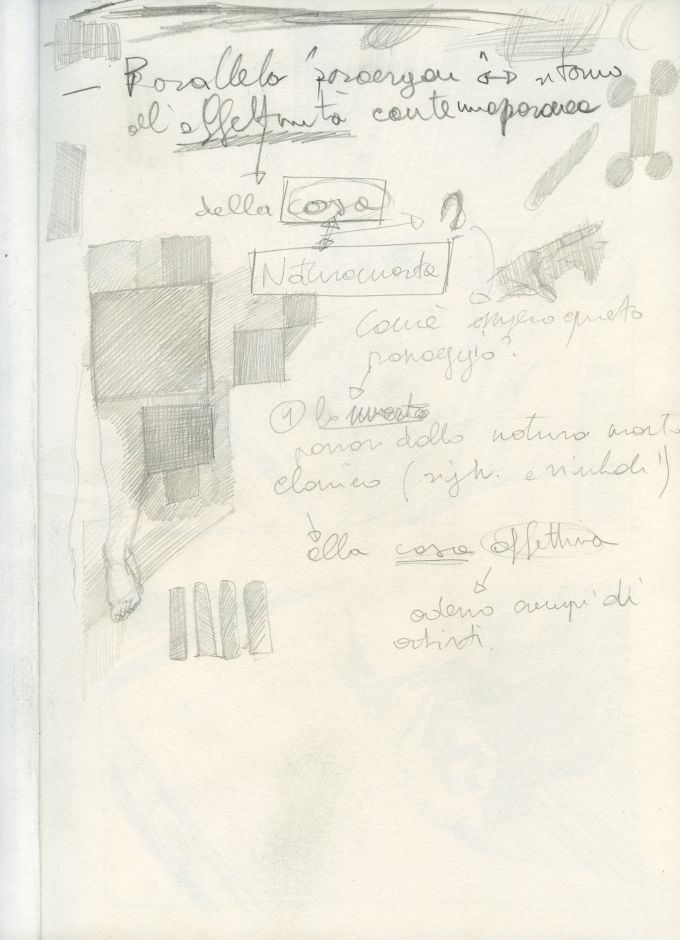 — Parallelo "parergon" ↔ ritorno
all'affettività contemporanea
della cosa ?
Natura morta
Com'è questo
passaggio?
① la morte
dalla natura morta
classica (sign. e simboli)
alla cosa affettiva
esempi di
artisti.